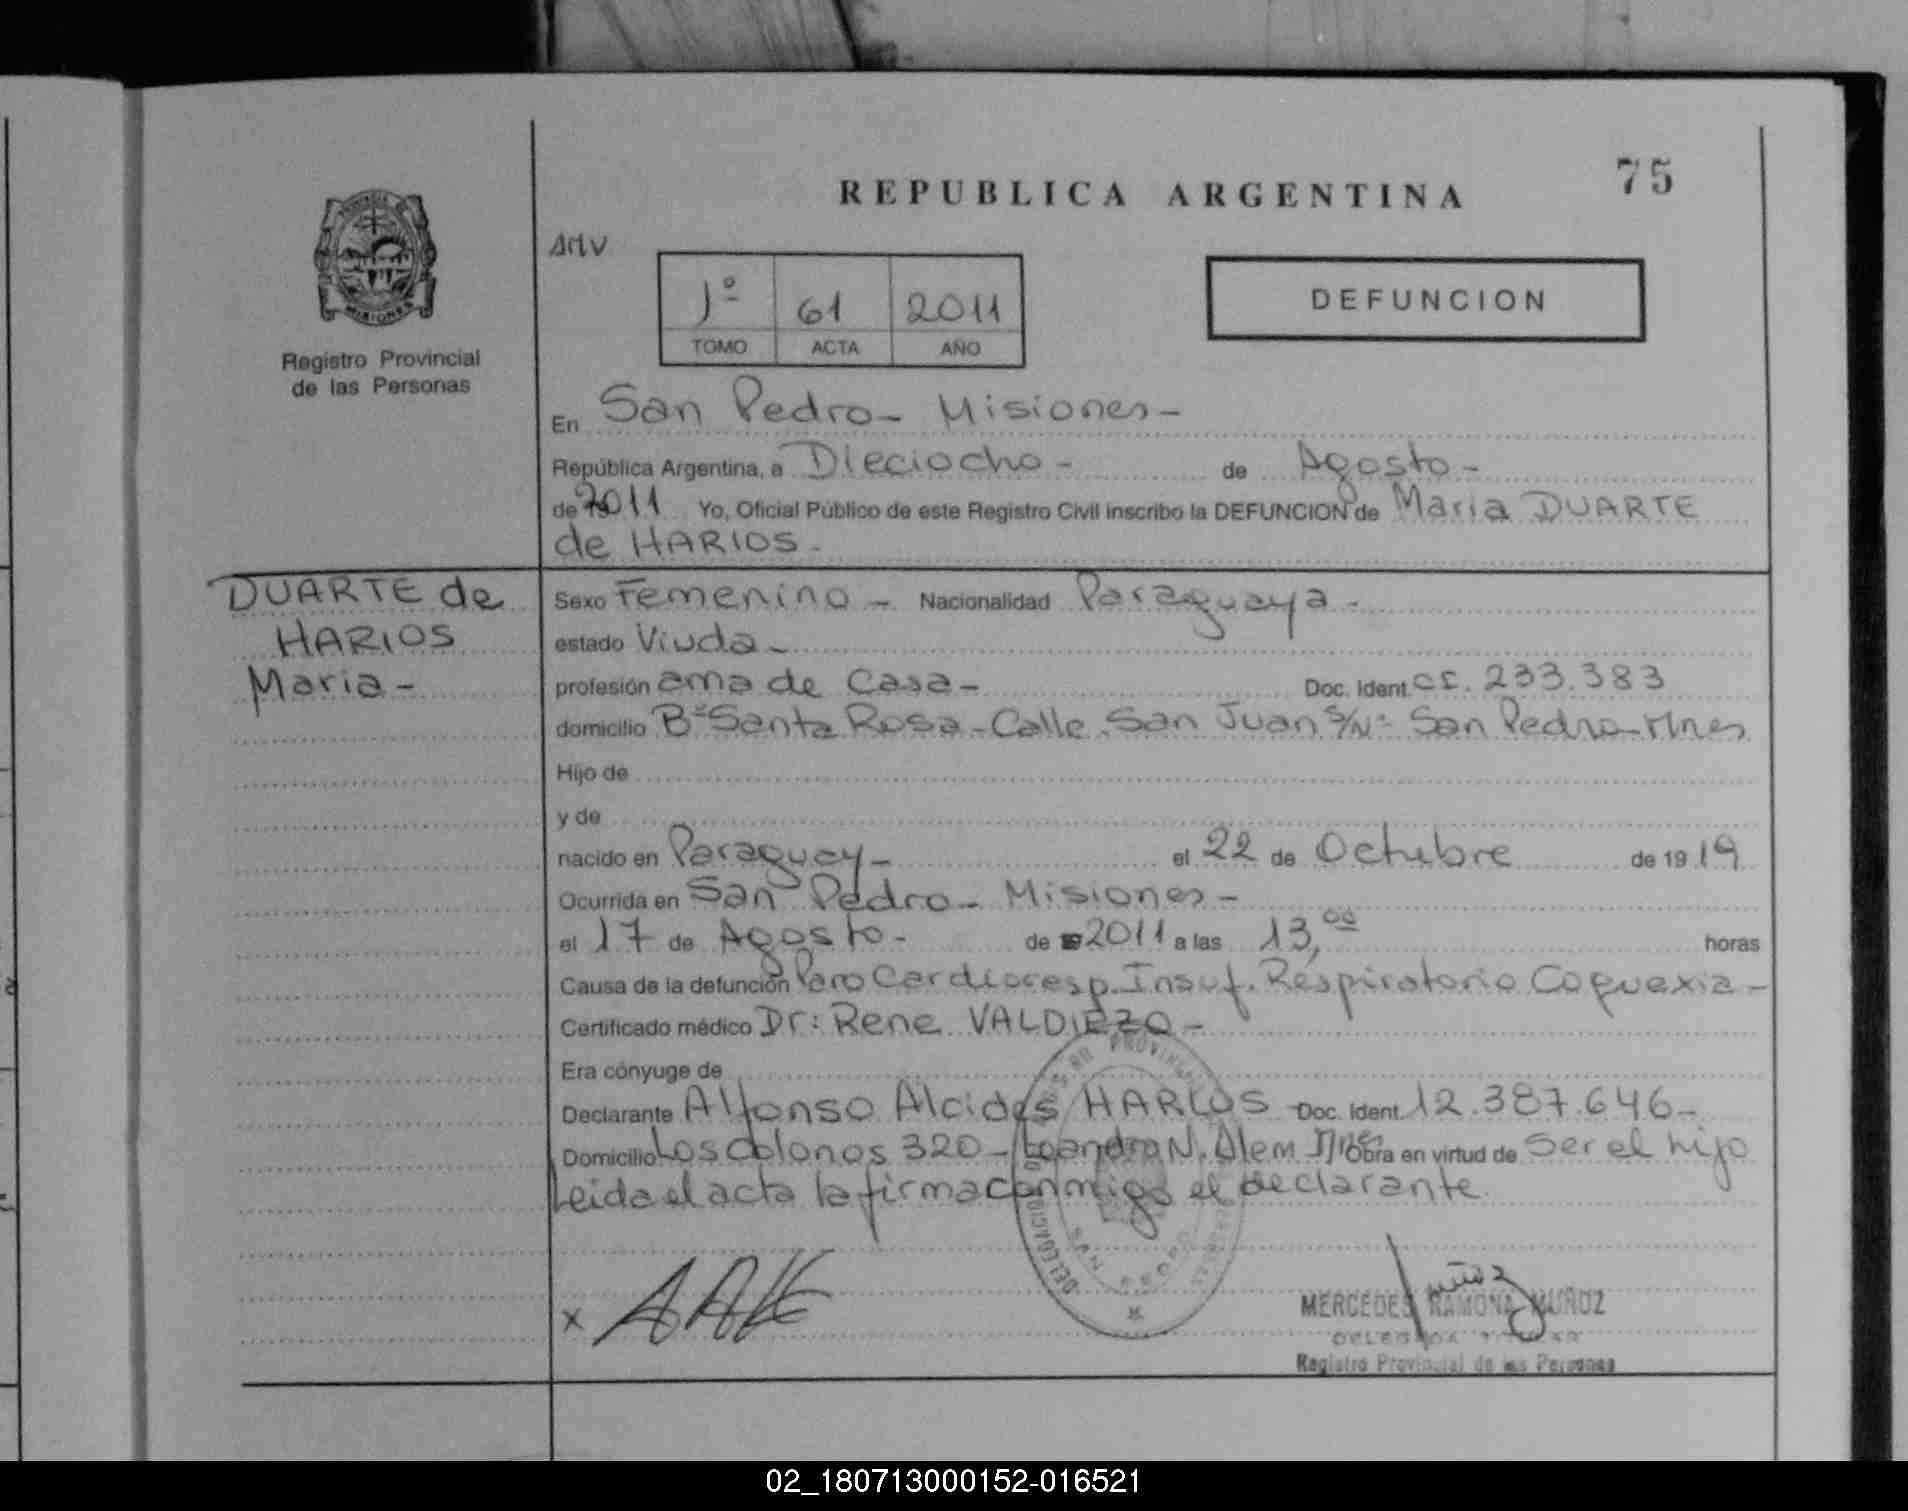 REPUBLICA ARGENTINA
75
PROVINCIA DE
MISIONES
Registro Provincial
de las Personas
AMV
1º 61 2011
TOMO ACTA AÑO
DEFUNCION
En San Pedro - Misiones -
República Argentina, a Dieciocho - de Agosto -
de 2011 Yo, Oficial Público de este Registro Civil inscribo la DEFUNCION de Maria DUARTE
de HARIOS -
DUARTE de
HARIOS
Maria -
Sexo Femenino - Nacionalidad Paraguaya -
estado Viuda -
profesión ama de Casa - Doc. Ident. CI. 233.383
domicilio Bº Santa Rosa - Calle San Juan S/Nº San Pedro - Mnes
Hijo de
y de
nacido en Paraguay - el 22 de Octubre de 19 19
Ocurrida en San Pedro - Misiones -
el 17 de Agosto - de 2011 a las 13,00 horas
Causa de la defunción Paro Cardioresp. Insuf. Respiratorio Coquexia -
Certificado médico Dr: Rene VALDIEZO -
Era cónyuge de
Declarante Alfonso Alcides HARIOS - Doc. Ident. 12.387.646 -
Domicilio Los Colonos 320 - Leandro N. Alem Mnes Obra en virtud de Ser el hijo
Leida el acta la firma conmigo el declarante.
x
MERCEDES RAMONA MUÑOZ
DELEGADA TITULAR
Registro Provincial de las Personas
02_180713000152-016521